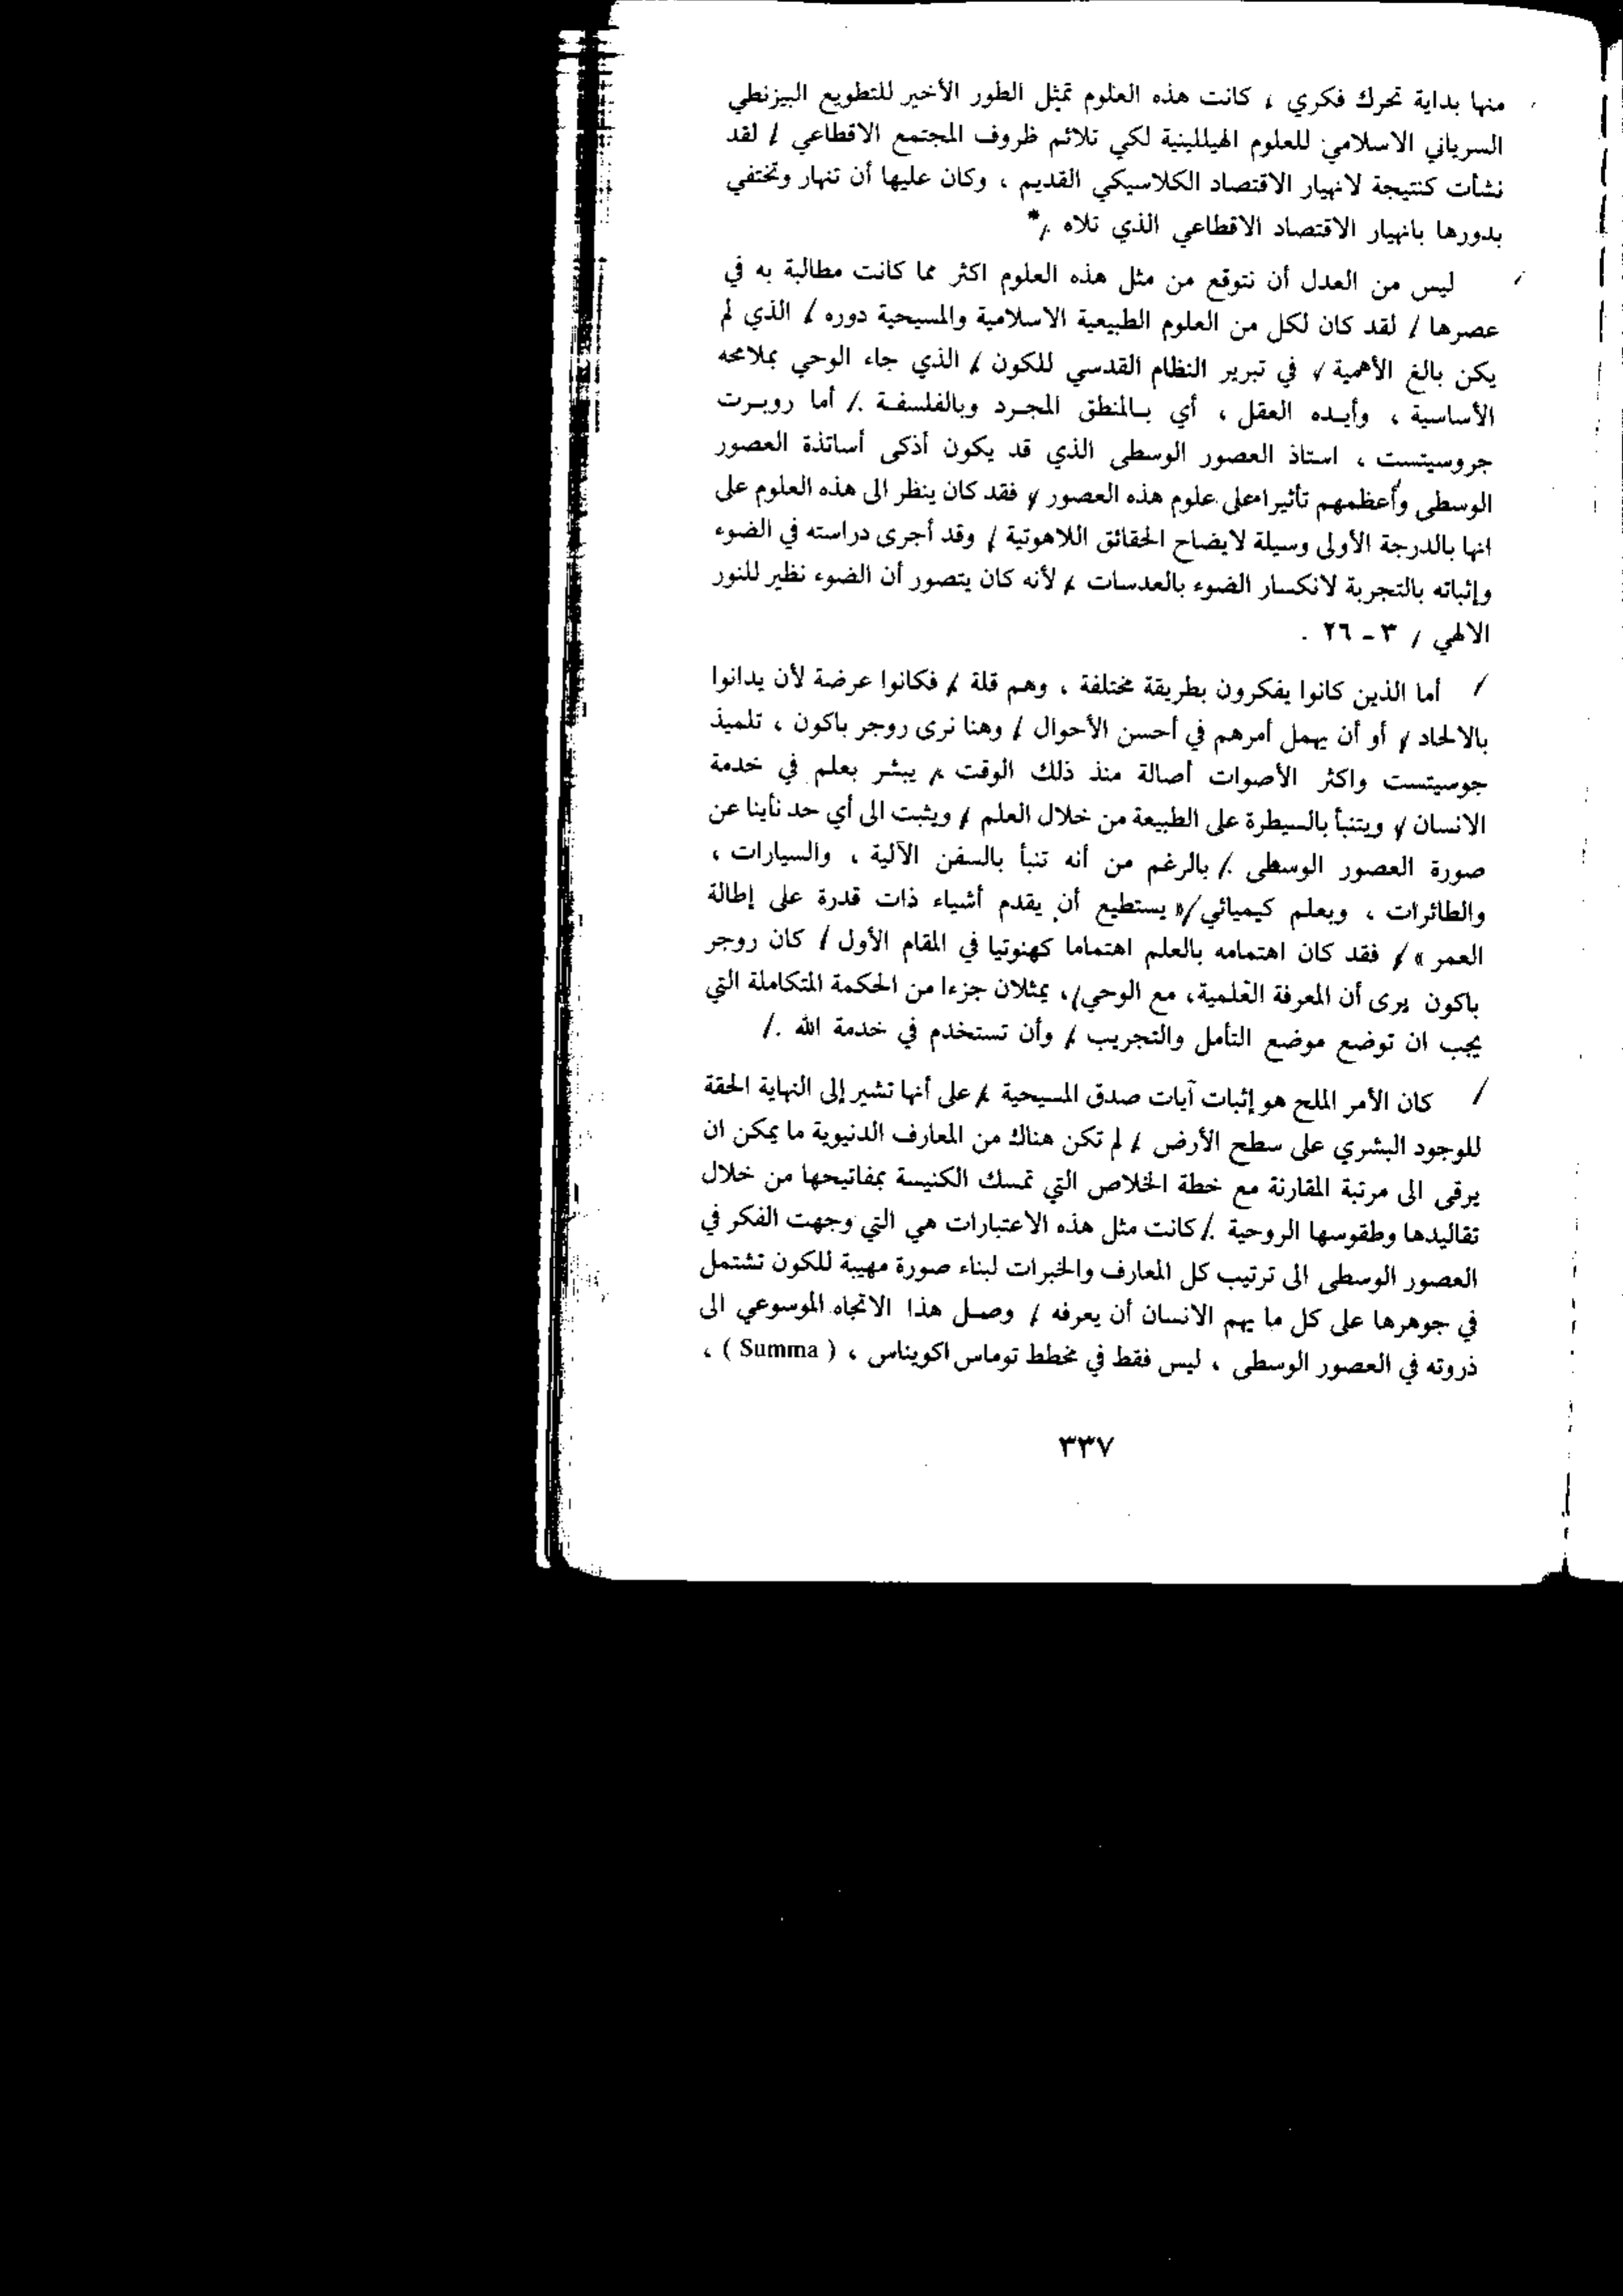 منها بداية تحرك فكري ، كانت هذه العلوم تمثل الطور الأخير للتطويع البيزنطي
السرياني الاسلامي للعلوم الهيللينية لكي تلائم ظروف المجتمع الاقطاعي / لقد
نشأت كنتيجة لانهيار الاقتصاد الكلاسيكي القديم ، وكان عليها أن تنهار وتختفي
بدورها بانهيار الاقتصاد الاقطاعي الذي تلاه ./*
ليس من العدل أن نتوقع من مثل هذه العلوم اكثر مما كانت مطالبة به في
عصرها / لقد كان لكل من العلوم الطبيعية الاسلامية والمسيحية دوره / الذي لم
يكن بالغ الأهمية / في تبرير النظام القدسي للكون / الذي جاء الوحي بملامحه
الأساسية ، وأيده العقل ، أي بالمنطق المجرد وبالفلسفة ./ أما روبرت
جروسيتست ، استاذ العصور الوسطى الذي قد يكون أذكى أساتذة العصور
الوسطى وأعظمهم تأثيرا على علوم هذه العصور / فقد كان ينظر الى هذه العلوم على
انها بالدرجة الأولى وسيلة لايضاح الحقائق اللاهوتية / وقد أجرى دراسته في الضوء
وإثباته بالتجربة لانكسار الضوء بالعدسات / لأنه كان يتصور أن الضوء نظير للنور
الالهي / ٣ - ٢٦ .
/ أما الذين كانوا يفكرون بطريقة مختلفة ، وهم قلة / فكانوا عرضة لأن يدانوا
بالالحاد / أو أن يهمل أمرهم في أحسن الأحوال / وهنا نرى روجر باكون ، تلميذ
جوسيتست واكثر الأصوات أصالة منذ ذلك الوقت / يبشر بعلم في خدمة
الانسان / ويتنبأ بالسيطرة على الطبيعة من خلال العلم / ويثبت الى أي حد نأينا عن
صورة العصور الوسطى ./ بالرغم من أنه تنبأ بالسفن الآلية ، والسيارات ،
والطائرات ، وبعلم كيميائي /« يستطيع أن يقدم أشياء ذات قدرة على إطالة
العمر » / فقد كان اهتمامه بالعلم اهتماما كهنوتيا في المقام الأول / كان روجر
باكون يرى أن المعرفة العلمية، مع الوحي /، يمثلان جزءا من الحكمة المتكاملة التي
يجب ان توضع موضع التأمل والتجريب / وأن تستخدم في خدمة الله ./
/ كان الأمر الملح هو إثبات آيات صدق المسيحية / على أنها تشير إلى النهاية الحقة
للوجود البشري على سطح الأرض / لم تكن هناك من المعارف الدنيوية ما يمكن ان
يرقى الى مرتبة المقارنة مع خطة الخلاص التي تمسك الكنيسة بمفاتيحها من خلال
تقاليدها وطقوسها الروحية ./ كانت مثل هذه الاعتبارات هي التي وجهت الفكر في
العصور الوسطى الى ترتيب كل المعارف والخبرات لبناء صورة مهيبة للكون تشتمل
في جوهرها على كل ما يهم الانسان أن يعرفه / وصل هذا الاتجاه الموسوعي الى
ذروته في العصور الوسطى ، ليس فقط في مخطط توماس اكويناس ، ( Summa ) ،
٣٣٧